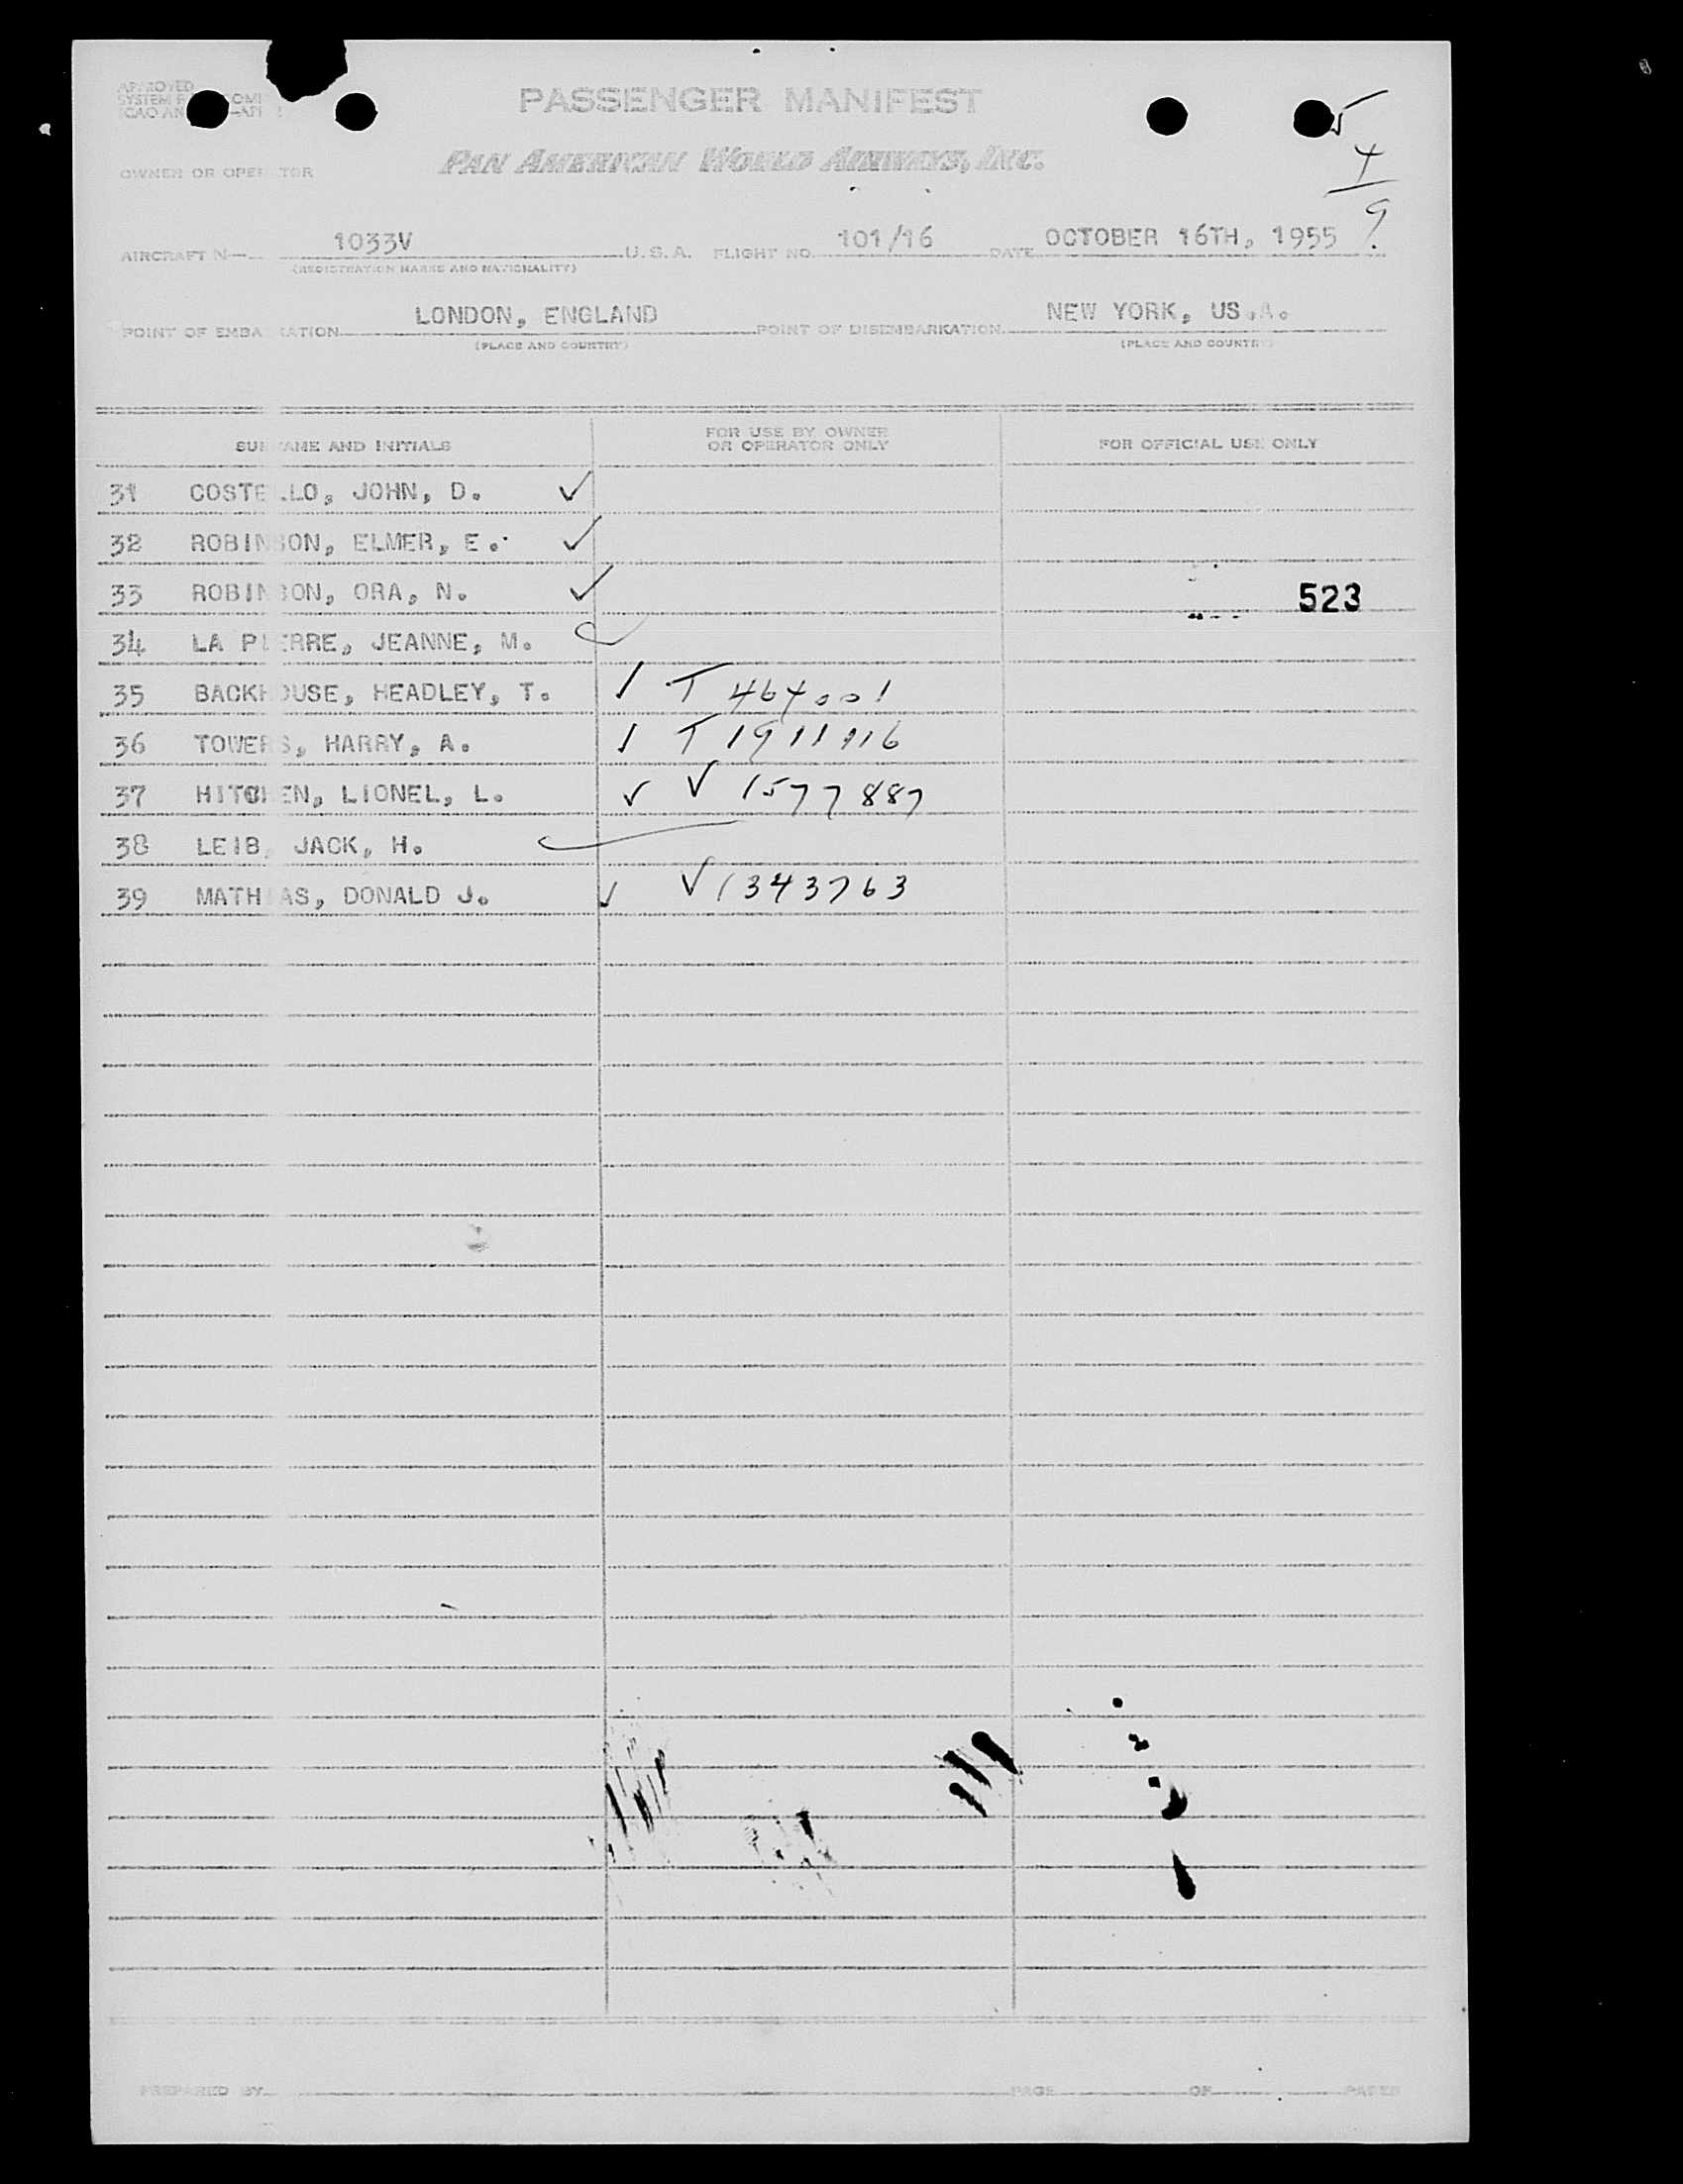 APPROVED
SYSTEM
ICAO AN
PASSENGER MANIFEST
5
4
9
OWNER OR OPERATOR
PAN AMERICAN WORLD AIRWAYS, INC.
AIRCRAFT N— 1033V U.S.A. FLIGHT NO. 101/16 DATE OCTOBER 16TH, 1955
(REGISTRATION MARKS AND NATIONALITY)
POINT OF EMBARKATION LONDON, ENGLAND POINT OF DISEMBARKATION NEW YORK, US.A.
(PLACE AND COUNTRY) (PLACE AND COUNTRY)
SURNAME AND INITIALS FOR USE BY OWNER OR OPERATOR ONLY FOR OFFICIAL USE ONLY
31 COSTELLO, JOHN, D. ✓
32 ROBINSON, ELMER, E. ✓
33 ROBINSON, ORA, N. ✓ 523
34 LA PIERRE, JEANNE, M.
35 BACKHOUSE, HEADLEY, T. T 464001
36 TOWERS, HARRY, A. T 1911116
37 HITCHEN, LIONEL, L. ✓ V 1577887
38 LEIB, JACK, H.
39 MATHIAS, DONALD J. ✓ V 1343763
PREPARED BY PAGE OF PAGES